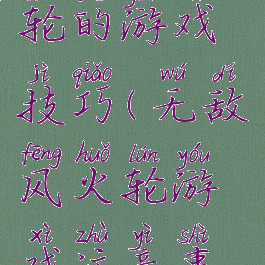 轮的游戏
jì qiǎo wú dí
技巧(无敌
fēng huǒ lún yóu
风火轮游
xì zhù yì shì
戏注意事